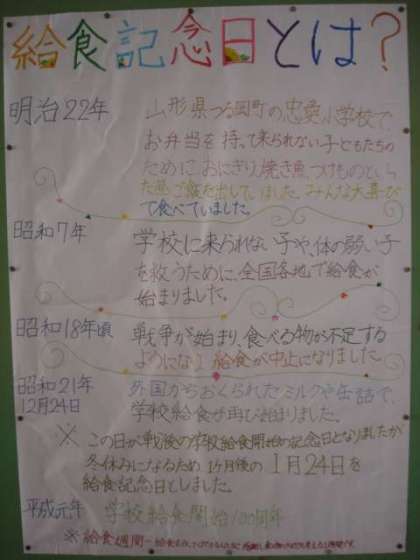 給食記念日とは?
明治22年
山形県つる岡町の忠愛小学校で、
お弁当を持って来られない子どもたちの
ために、おにぎり、焼き魚、つけものといっ
た昼ご飯を出していました。みんな大喜び
で食べていました。
昭和7年
学校に来られない子や、体の弱い子
を救うために、全国各地で給食が
始まりました。
昭和18年頃
戦争が始まり、食べる物が不足する
ようになり、給食が中止になりました。
昭和21年
12月24日
外国からおくられたミルクや缶詰で、
学校給食が再び始まりました。
※ この日が戦後の学校給食開始の記念日となりましたが
冬休みになるため 1ヶ月後の 1月24日を
給食記念日としました。
平成元年
学校給食開始100周年
※給食週間